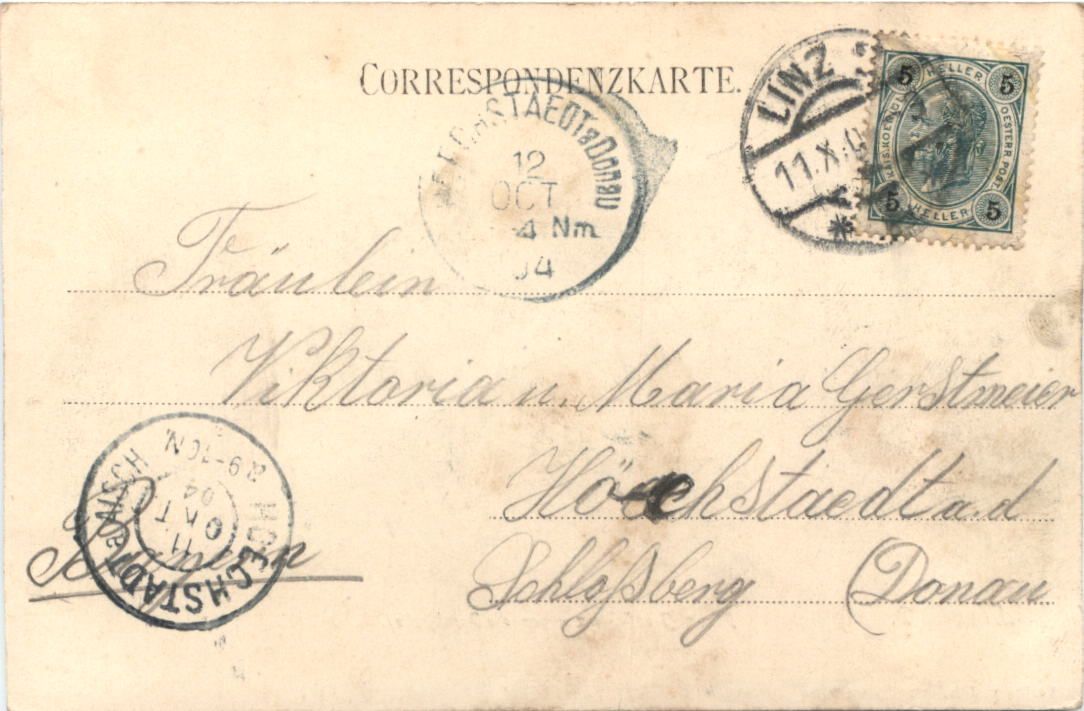 CORRESPONDENZKARTE.
LINZ
11.X.
5 HELLER 5
KAIS. KOENIGL. OESTERR. POST.
5 HELLER 5
HOECHSTAEDT a Donau
12
OCT
4 Nm.
04
Fräulein
Viktoria u. Maria Gerstmeier
Höchstaedt a. d
Schloßberg (Donau
Bayern
HOECHSTADT a. AISCH
11
OKT
04
9-10N.